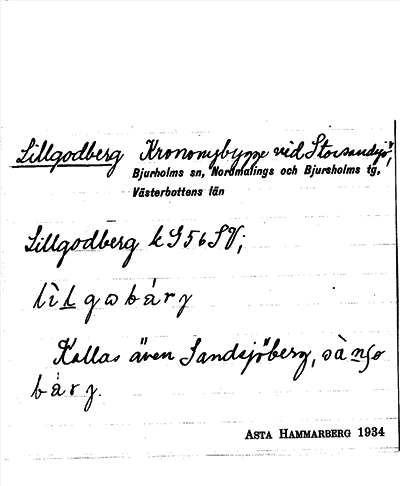 Lillgodberg Krononybygge vid Storsandsjö,
Bjurholms sn, Nordmalings och Bjurholms tg,
Västerbottens län
Lillgodberg k S56SV;
Kallas även Sandsjöberg,
ASTA HAMMARBERG 1934